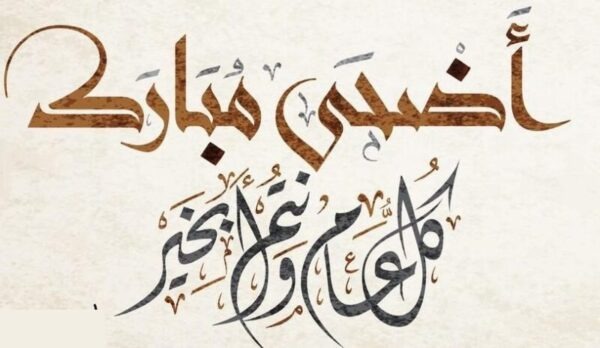 أَضْحَى مُبَارَك
كُلُّ عَامٍ وَأَنْتُم بِخَيْر